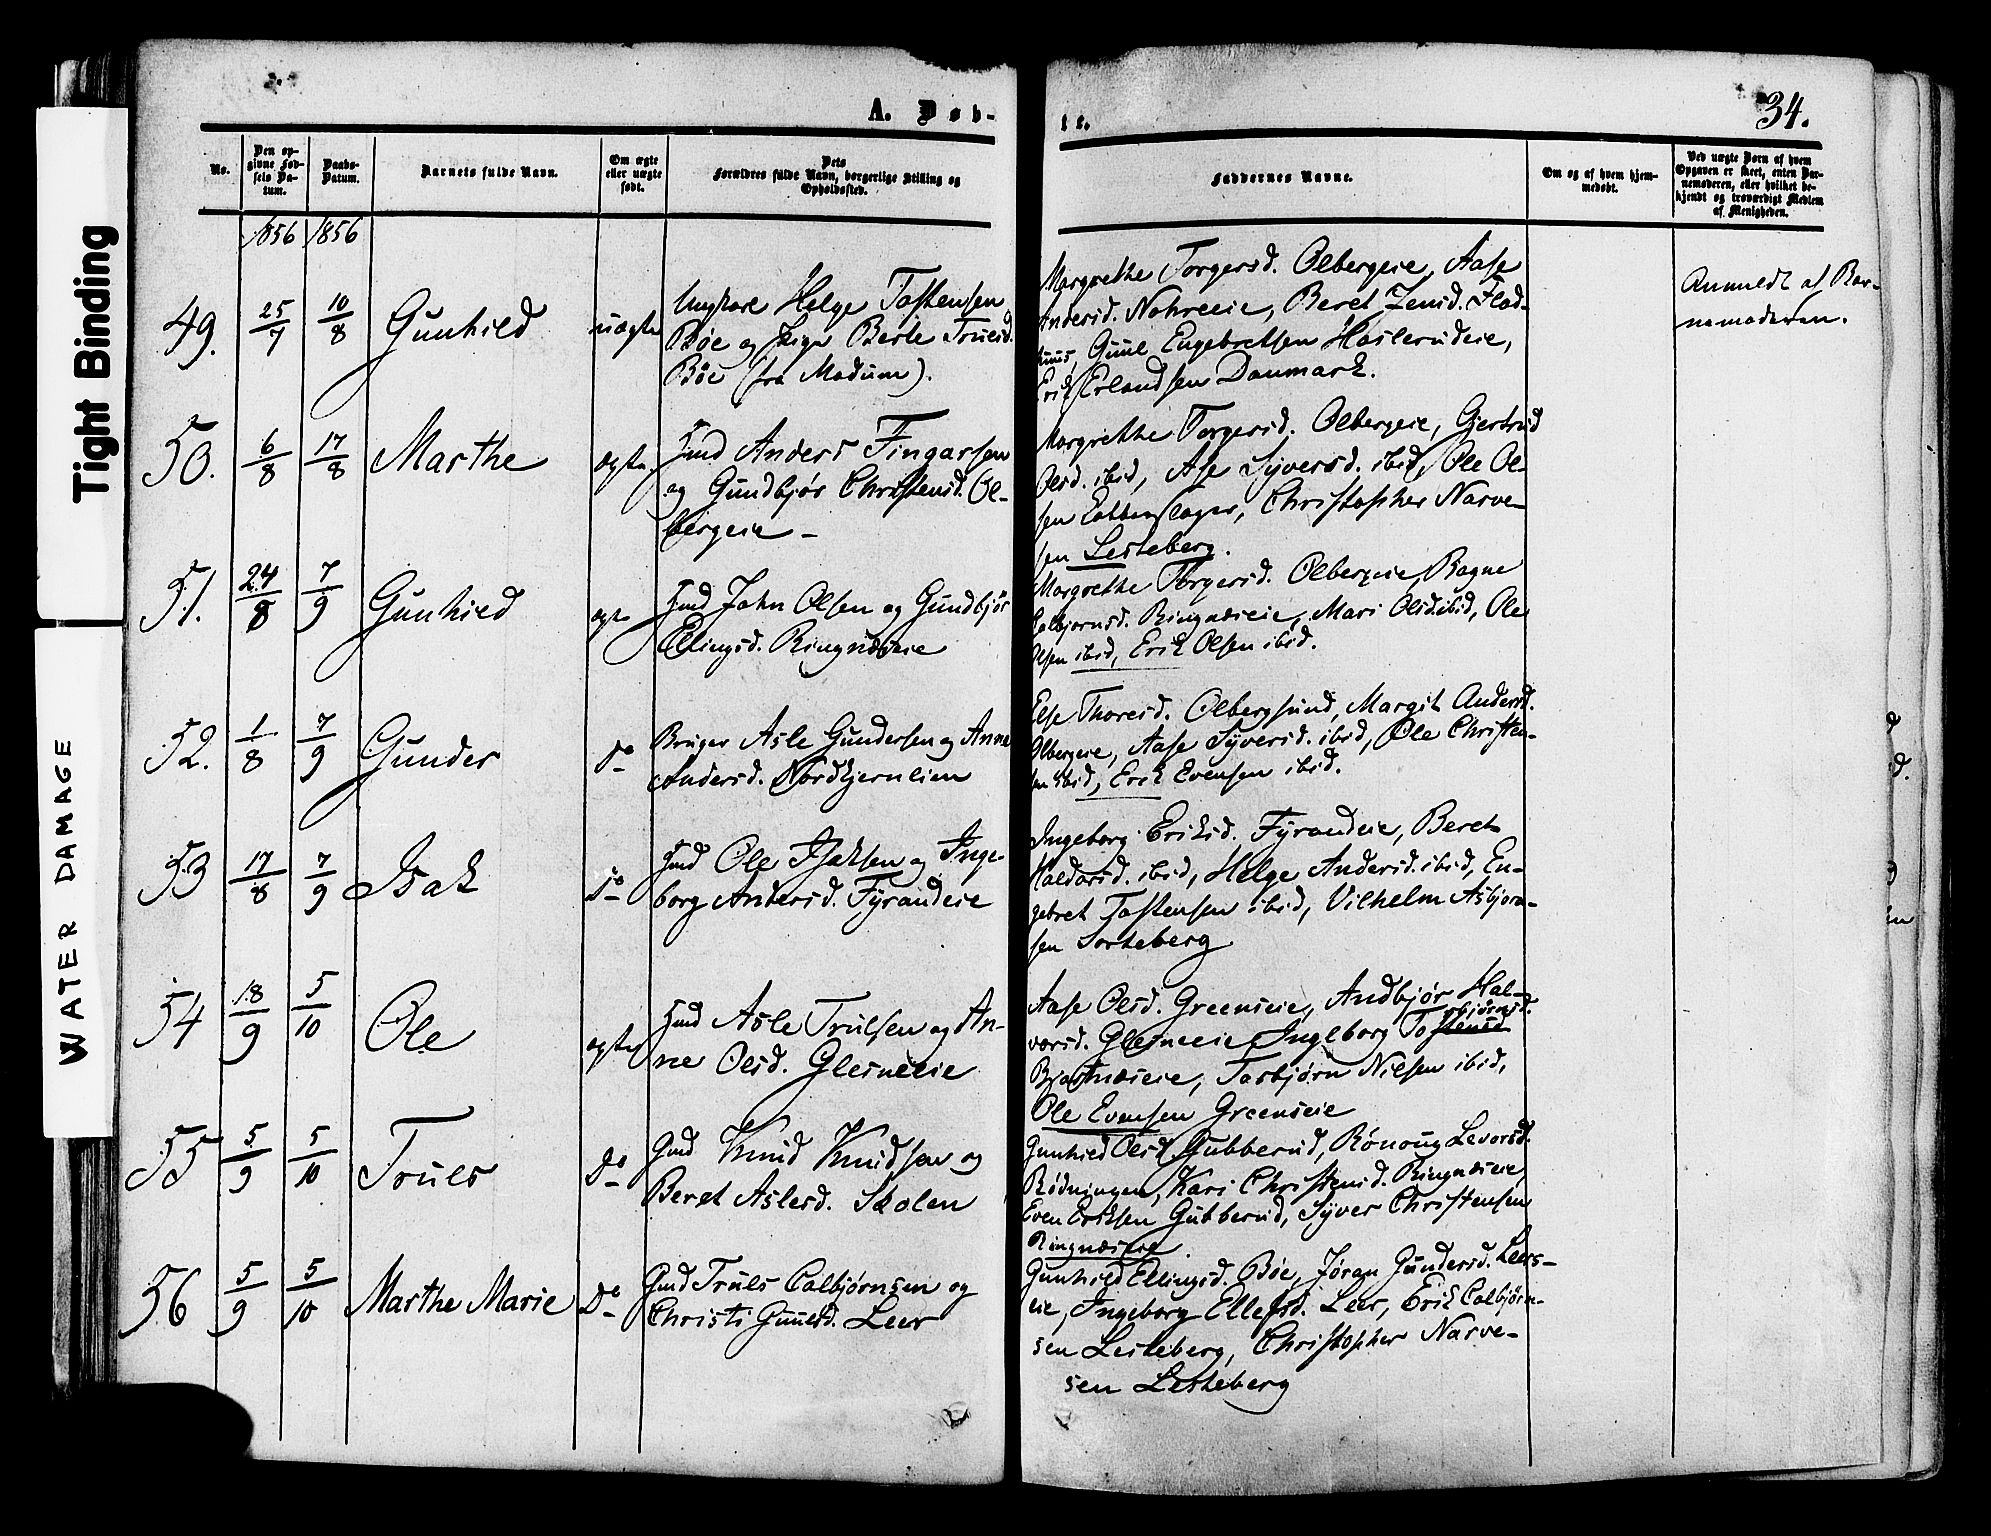 Tight Binding
WATER DAMAGE
A. Døb-
te.
34.
No.
Den op-
givne Fød-
sels Da-
tum.
Daabs-
Datum.
Barnets fulde Navn.
Om ægte
eller uægte
født.
Dets
Forældres fulde Navn, borgerlige Stilling og
Opholdssted.
Faddernes Navne.
Om og af hvem hjem-
medøbt.
Ved uægte Børn af hvem
Opgaven er skeet, enten Bar-
nemoderen, eller hvilket be-
kjendt og troværdigt Medlem
af Menigheden.
1856 1856
49. 25/7 10/8 Gunhild uægte
Ungkarl Helge Tostensen
Bøe og Pige Berte Trulsd.
Bøe (fra Modum).
Margrethe Torgersd. Olbergeie, Aase
Andersd. Nohreeie, Beret Jensd. Flad-
huus, Guul Engebretsen Haslerudeie,
Erik Erlandsen Danmark.
Anmeldt af Bar-
nemoderen.
50. 6/8 17/8 Marthe ægte
Hmd Anders Fingarsen
og Gundbjør Christensd. Ol-
bergeie -
Margrethe Torgersd. Olbergeie, Gjertrud
Olsd. ibid, Ase Syversd. ibid, Ole Ol-
sen, Christopher Narve-
sen Lesteberg.
51. 24/8 7/9 Gunhild ægte
Hmd John Olsen og Gundbjør
Ellingsd. Ringnæseie
Margrethe Torgersd. Olbergeie, Bagne
Colbjørnsd. Ringnæseie, Mari Olsd. ibid, Ole
Olsen ibid, Erik Olsen ibid.
52. 1/8 7/9 Gunder Do
Bruger Asle Gundersen og Anne
Andersd. Nordtjernlien
Else Thoresd. Olbergsund, Margit Andersd.
Olbergeie, Aase Syversd. ibid, Ole Christen-
sen ibid, Erik Evensen ibid.
53 17/8 7/9 Isak Do
Hmd Ole Isaksen og Inge-
borg Andersd. Fyrandeie
Ingeborg Eriksd. Fyrandeie, Beret
Haldorsd. ibid, Helge Andersd. ibid, En-
gebret Tostensen ibid, Vilhelm Asbjørn-
sen Sorteberg
54 18/9 5/10 Ole ægte
Hmd Asle Trulsen og An-
ne Olsd. Glesneeie
Aase Olsd. Greenseie, Andbjør Hal-
vorsd. Glesneeie Ingeborg Torbjørnsd.
Bjøstnæseie, Torbjørn Nilsen ibid,
Ole Evensen Greenseie
55 5/9 5/10 Truls Do
Gmd Knud Knudsen og
Beret Aslesd. Skolen
Gunhild Olsd. Gubberud, Rønoug Levorsd.
Rødningen, Kari Christensd. Ringnæseie
Even Eriksen Gubberud, Syver Christensen
Ringnæseie.
56 5/9 5/10 Marthe Marie Do
Gmd Truls Colbjørnsen og
Christi Guulsd. Leer
Gunhild Ellingsd. Bøe, Jøran Gundersd. Leers-
eie, Ingeborg Ellefsd. Leer, Erik Colbjørn-
sen Lesteberg, Christopher Narve-
sen Lesteberg